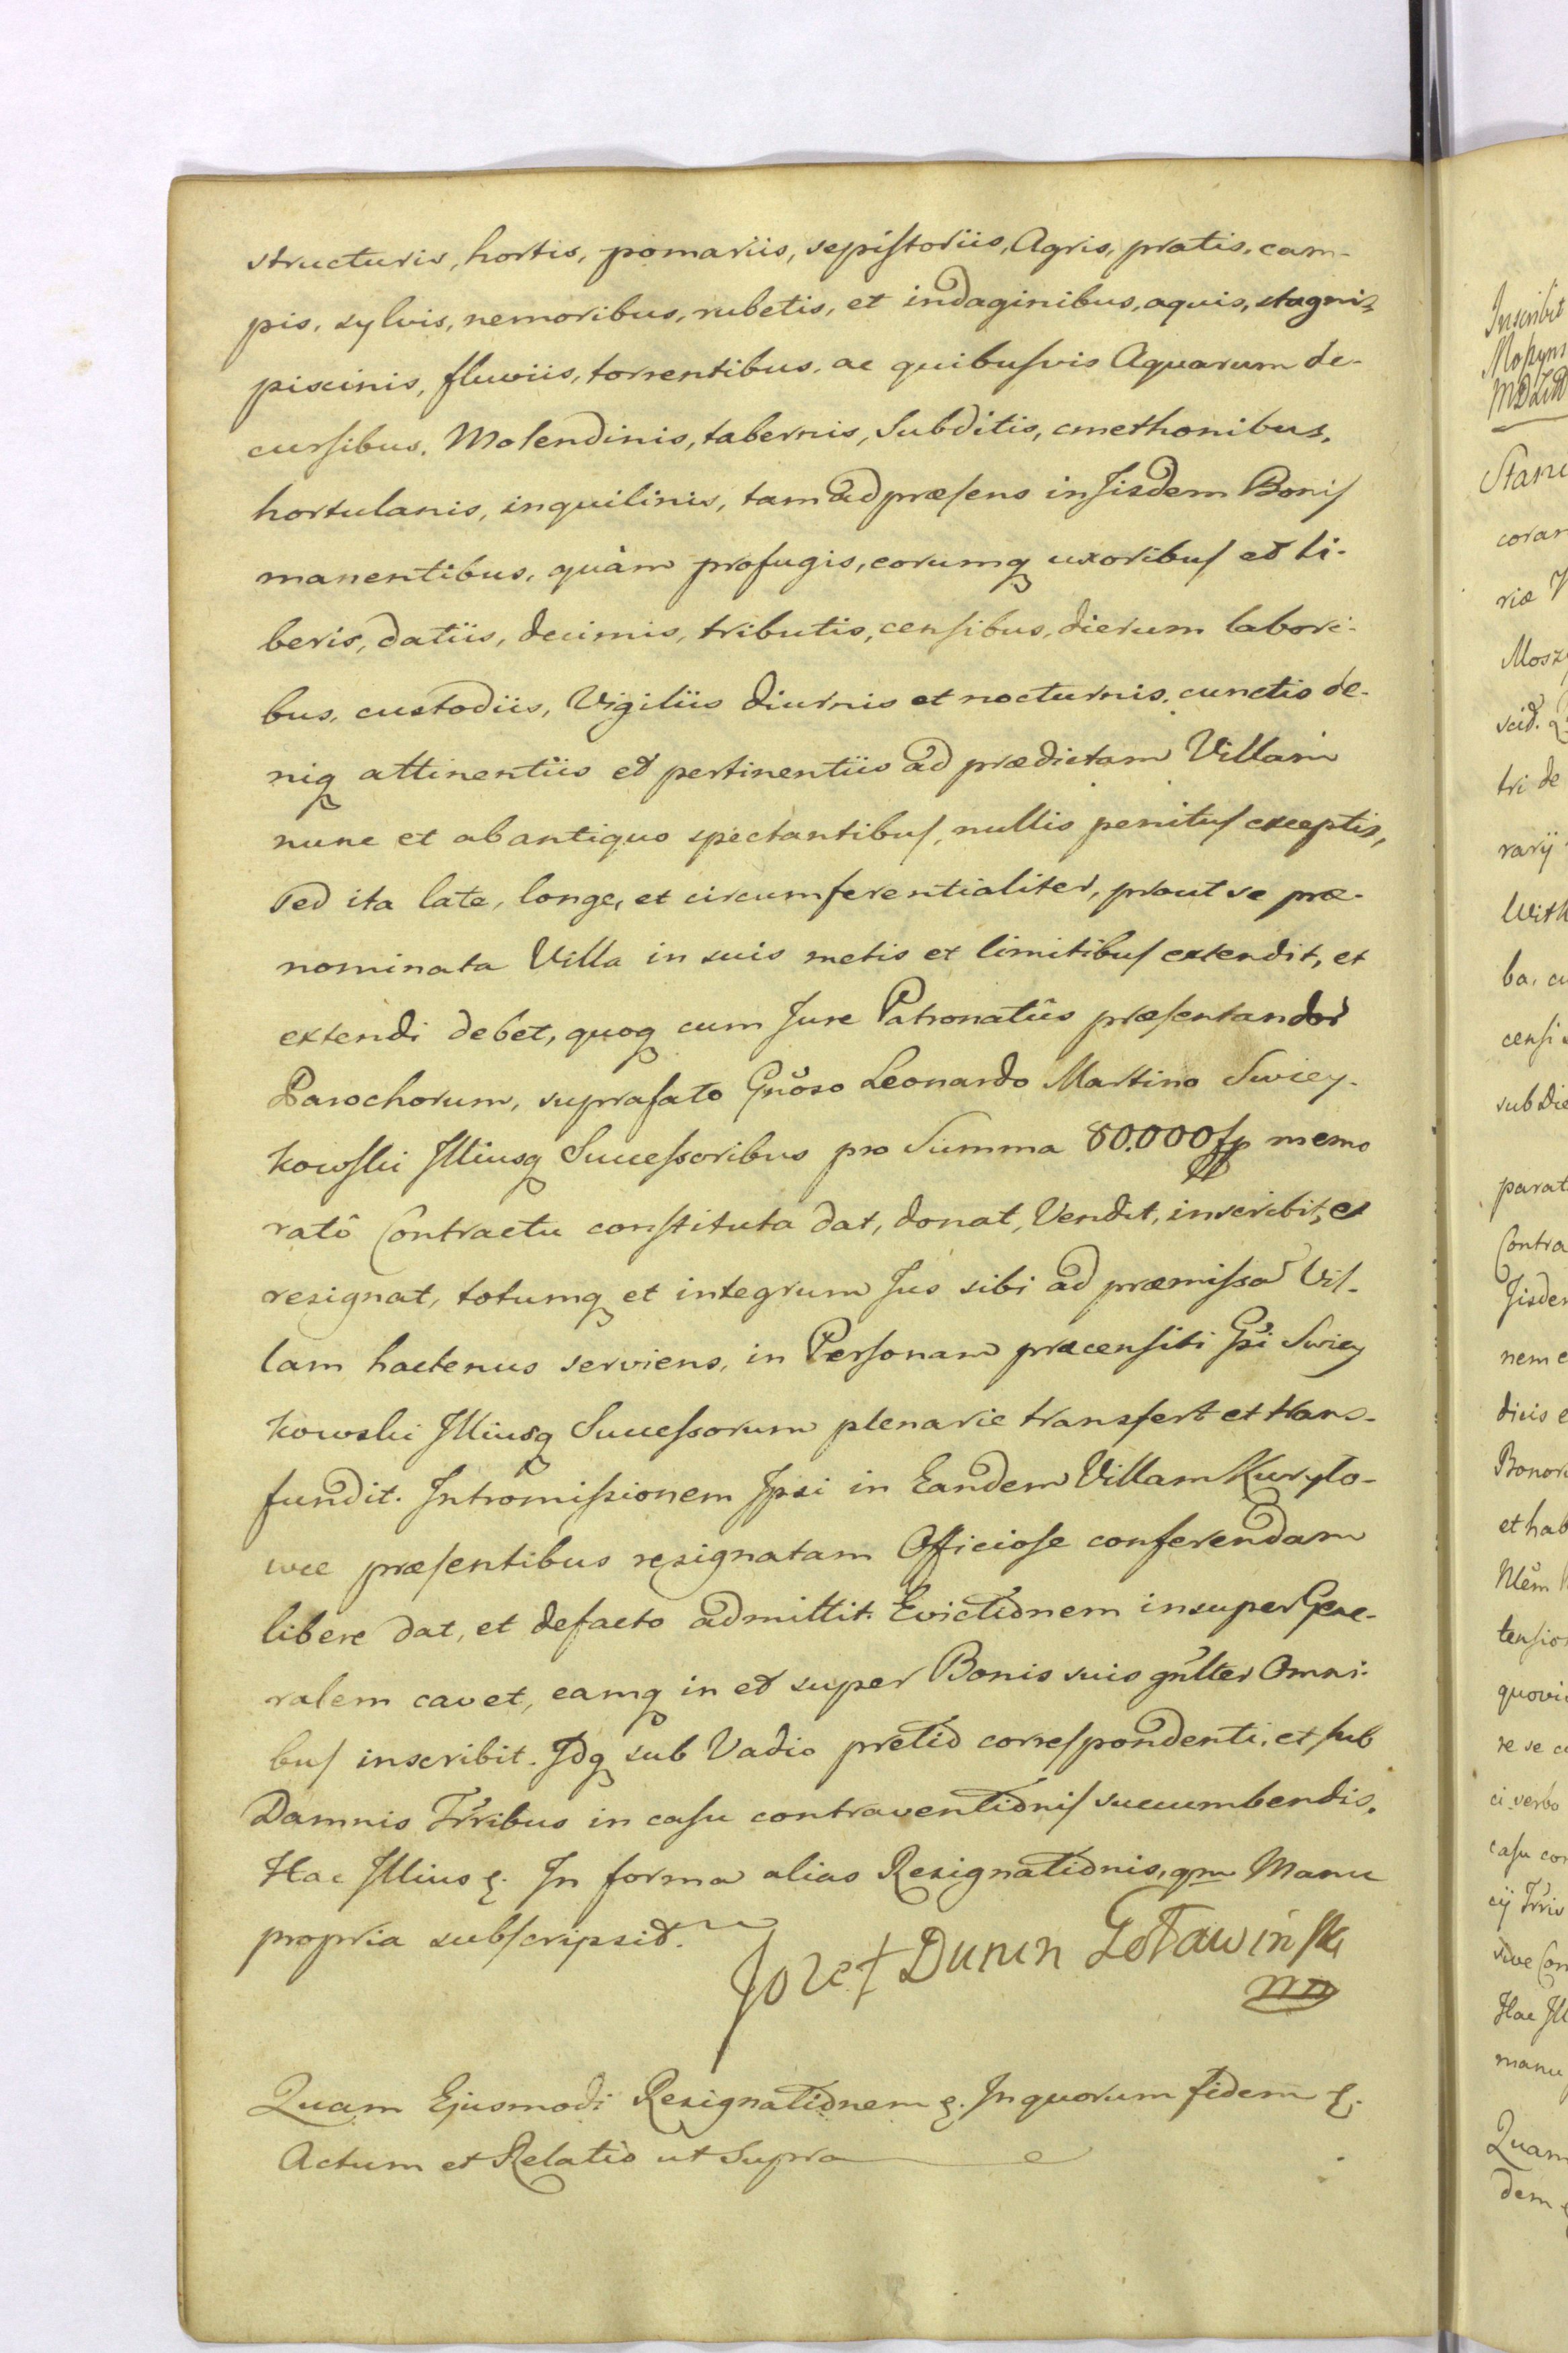 structuris, hortis, pomariis, sepiſtoriis, Agris, pratis, cam-
pis, sylvis, nemoribus, rubetis, et indaginibus, aquis, stagnis,
piscinis, fluviis, torrentibus, ac quibuſvis Aquarum de-
curſibus, Molendinis, tabernis, Subditis, cmethonibus,
hortulanis, inquilinis, tam ad præſens in Jisdem Boniſ
manentibus, quàm profugis, eorumq uxoribuſ et li-
beris, datiis, decimis, tributis, cenſibus, dierum labori-
bus, custodiis, Vigiliis diurnis et nocturnis, cunctis de-
niq attinentiis et pertinentiis ad prædictam Villam
nunc et ab antiquo spectantibuſ, nullis penituſ exceptis,
sed ita late, longe, et circumferentialiter, prout se præ-
nominata Villa in suis metis et limitibuſ extendit, et
extendi debet, quoq cum Jure Patronatûs præſentandor
Parochorum, suprafato Gnõso Leonardo Martino Swiey-
kowſki Jlliusq Succeſsoribus pro Summa 80.000 fp memo
ratô Contractu conſtituta dat, donat, Vendit, inscribit, et
resignat, totumq et integrum Jus sibi ad præmiſsa Vil-
lam hactenus serviens, in Perſonam præcenſiti Gsi Swiey
kowski Jlliusq Succeſsorum plenarie transfert et trans-
fundit. Intromiſsionem Jpsi in Eandem Villam Kuryło-
wce præſentibus resignatam Officioſe conferendam
libere dat, et defacto admittit. Evictionem insuper Gene-
ralem cavet, eamq in et super Bonis suis gñlter Omni-
buſ inscribit. Jdq sub Vadio pretio correſpondenti, et ſub
Damnis Trribus in caſu contraventioniſ succumbendis.
Hac Jllius &. In forma alias Resignationis, qm Manu
propria subſcripsit.
Jozef Dunin Gołławinſki
mp
Quam Ejusmodi Resignationem &. In quorum fidem &.
Actum et Relatio ut Supra
Inscribit
Stani
coram
riæ V
Mosz
tri de
rarij
With
ba, cu
cenſi
sub Die
parat
Contra
Jisdem
nem e
dicis e
Bonor
et hab
tenſio
quovi
re se c
ci verbo
caſu con
cij Trris
sive Con
Hac Jll
manu
Quam
dem &